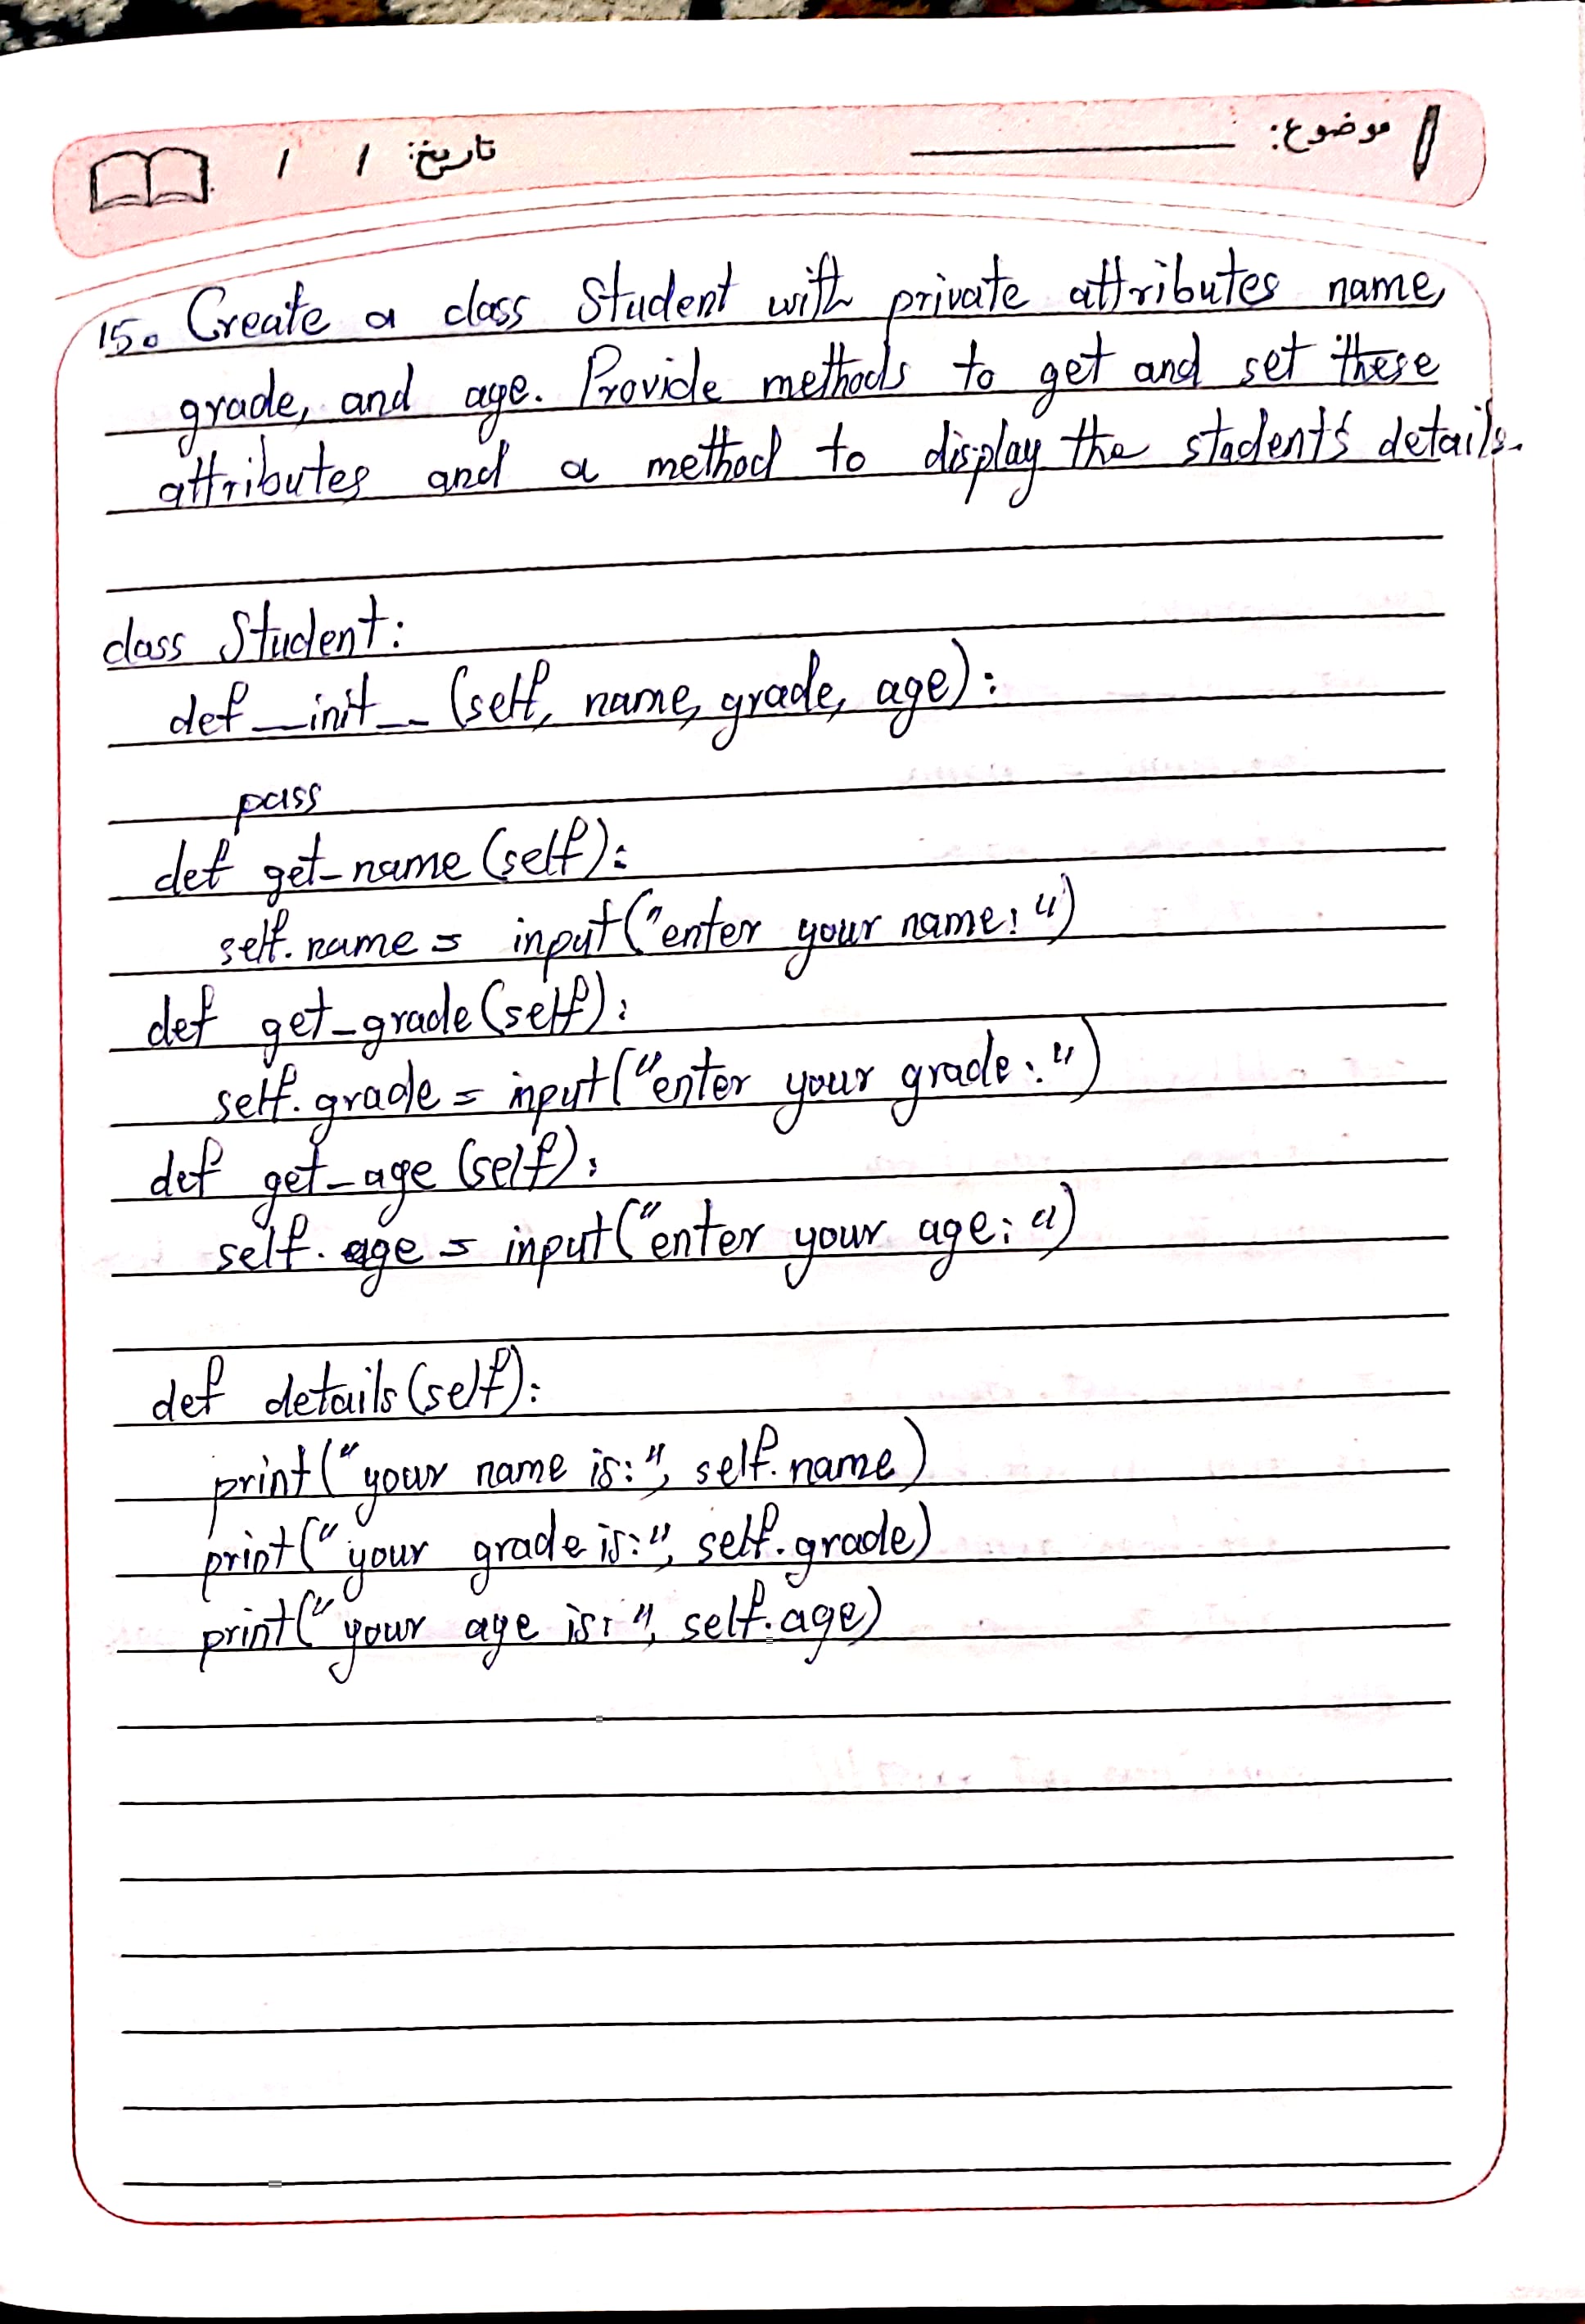 موضوع:
تاریخ: / /
15. Create a class Student with private attributes name,
grade, and age. Provide methods to get and set these
attributes and a method to display the student's details.
class Student:
def __init__ (self, name, grade, age):
pass
def get_name (self):
self.name = input("enter your name: ")
def get_grade (self):
self.grade = input("enter your grade: ")
def get_age (self):
self.age = input("enter your age: ")
def details (self):
print("your name is:", self.name)
print("your grade is:", self.grade)
print("your age is:", self.age)